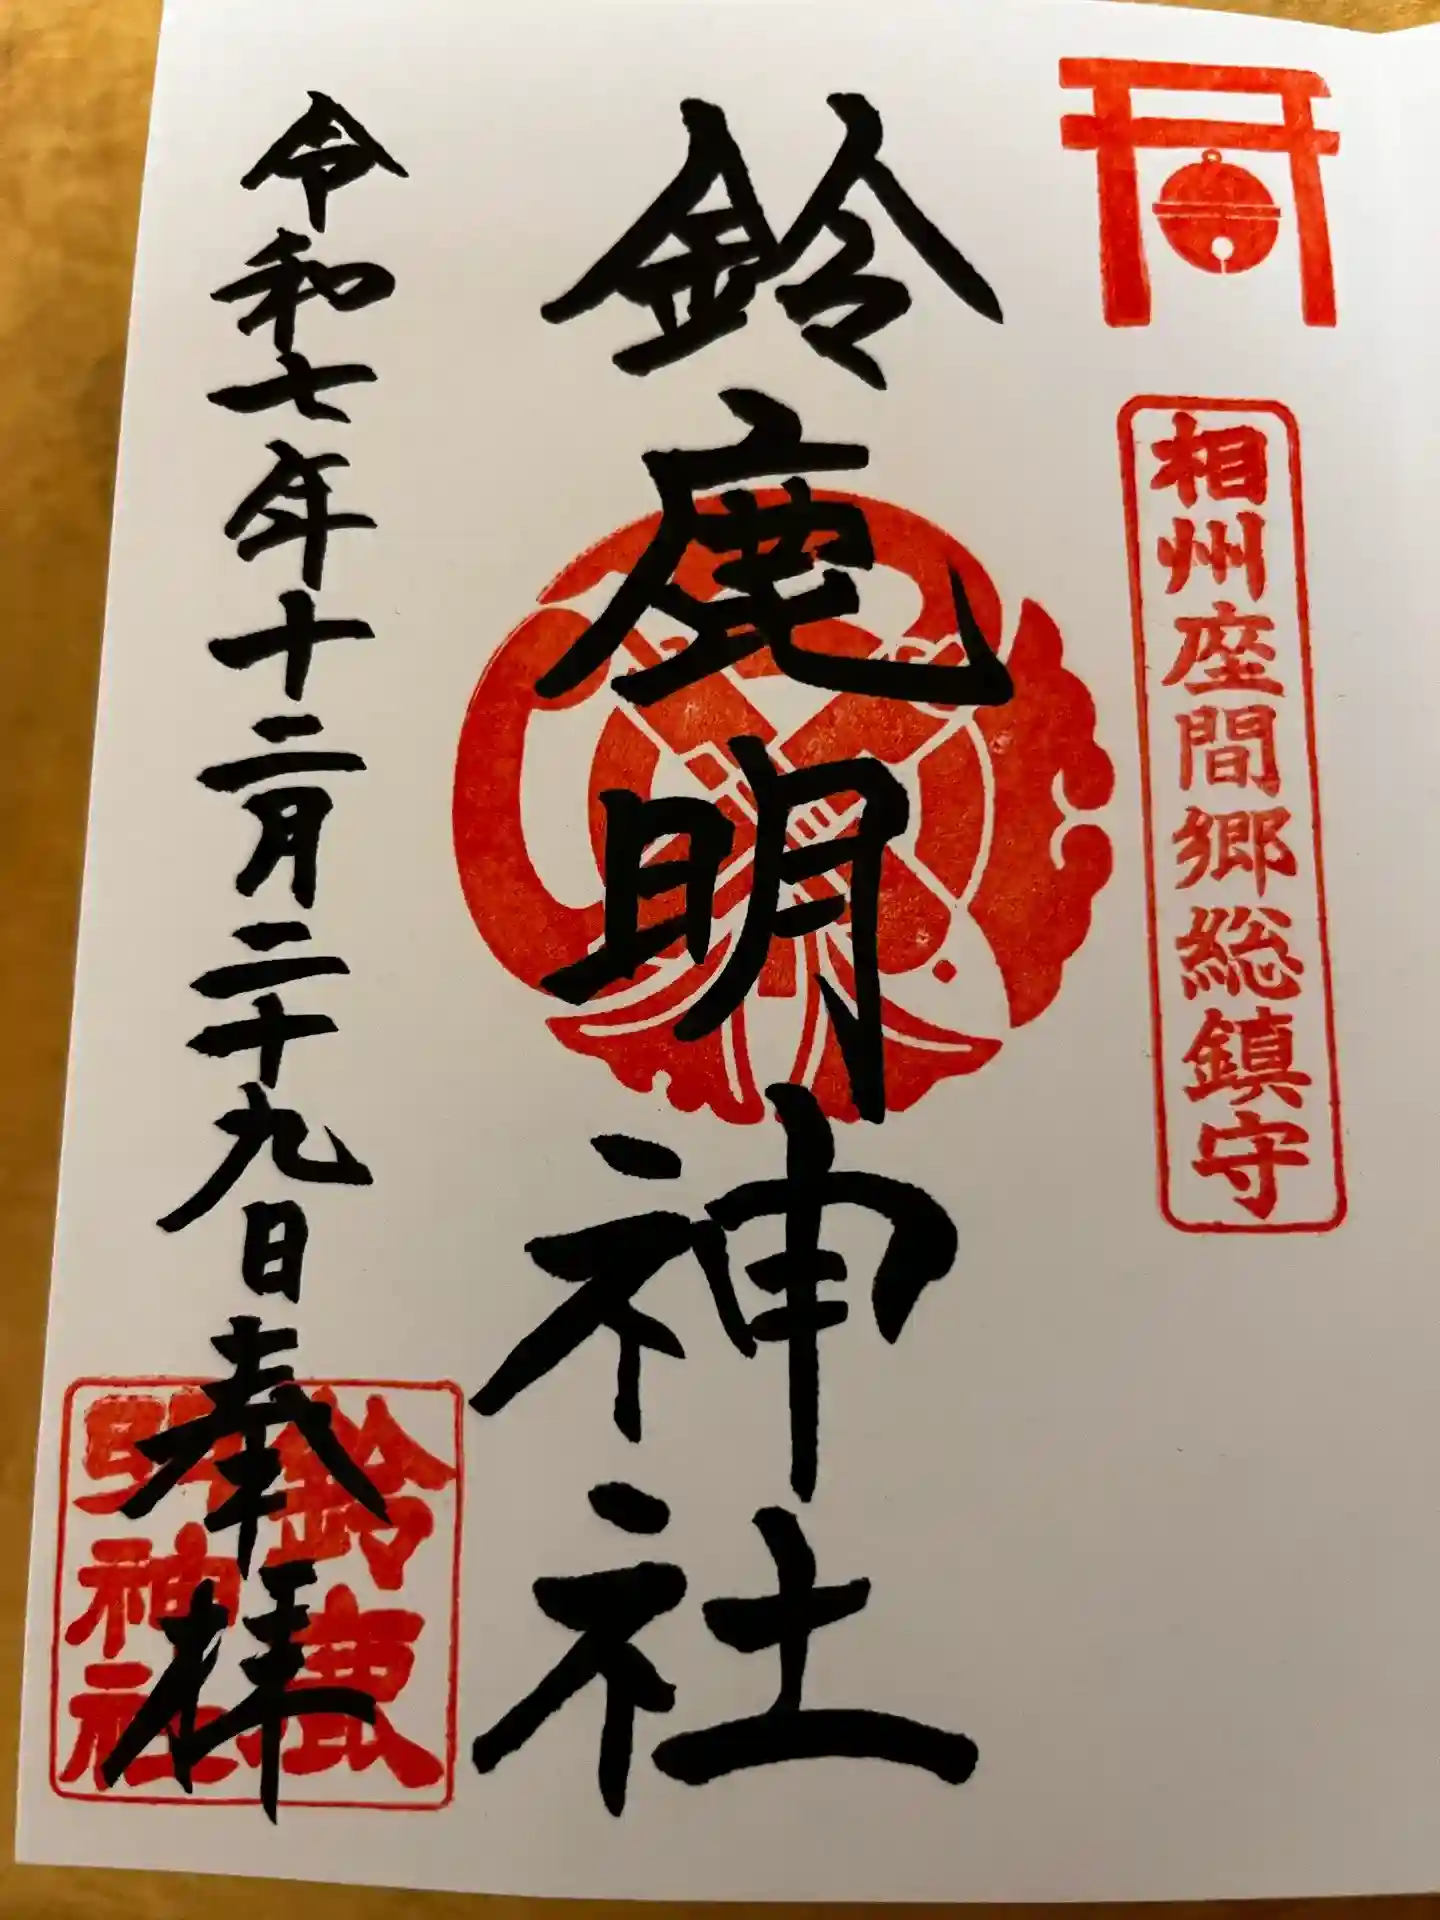 相州座間郷総鎮守
鈴鹿明神社
令和七年十二月二十九日奉拝
鈴鹿
明神社